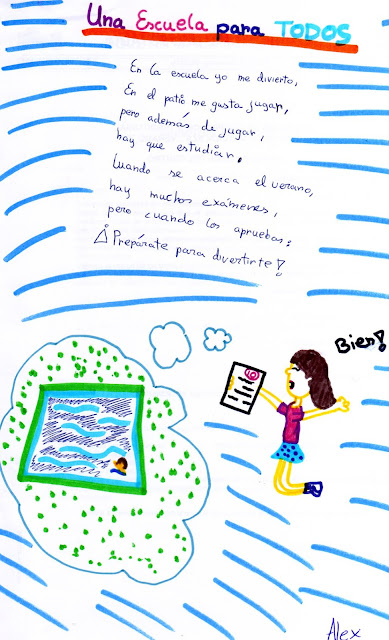 Una Escuela para TODOS
En la escuela yo me divierto,
En el patio me gusta jugar,
pero además de jugar,
hay que estudiar.
Cuando se acerca el verano,
hay muchos exámenes,
pero cuando los apruebas:
¡Prepárate para divertirte!
Bien!
Alex